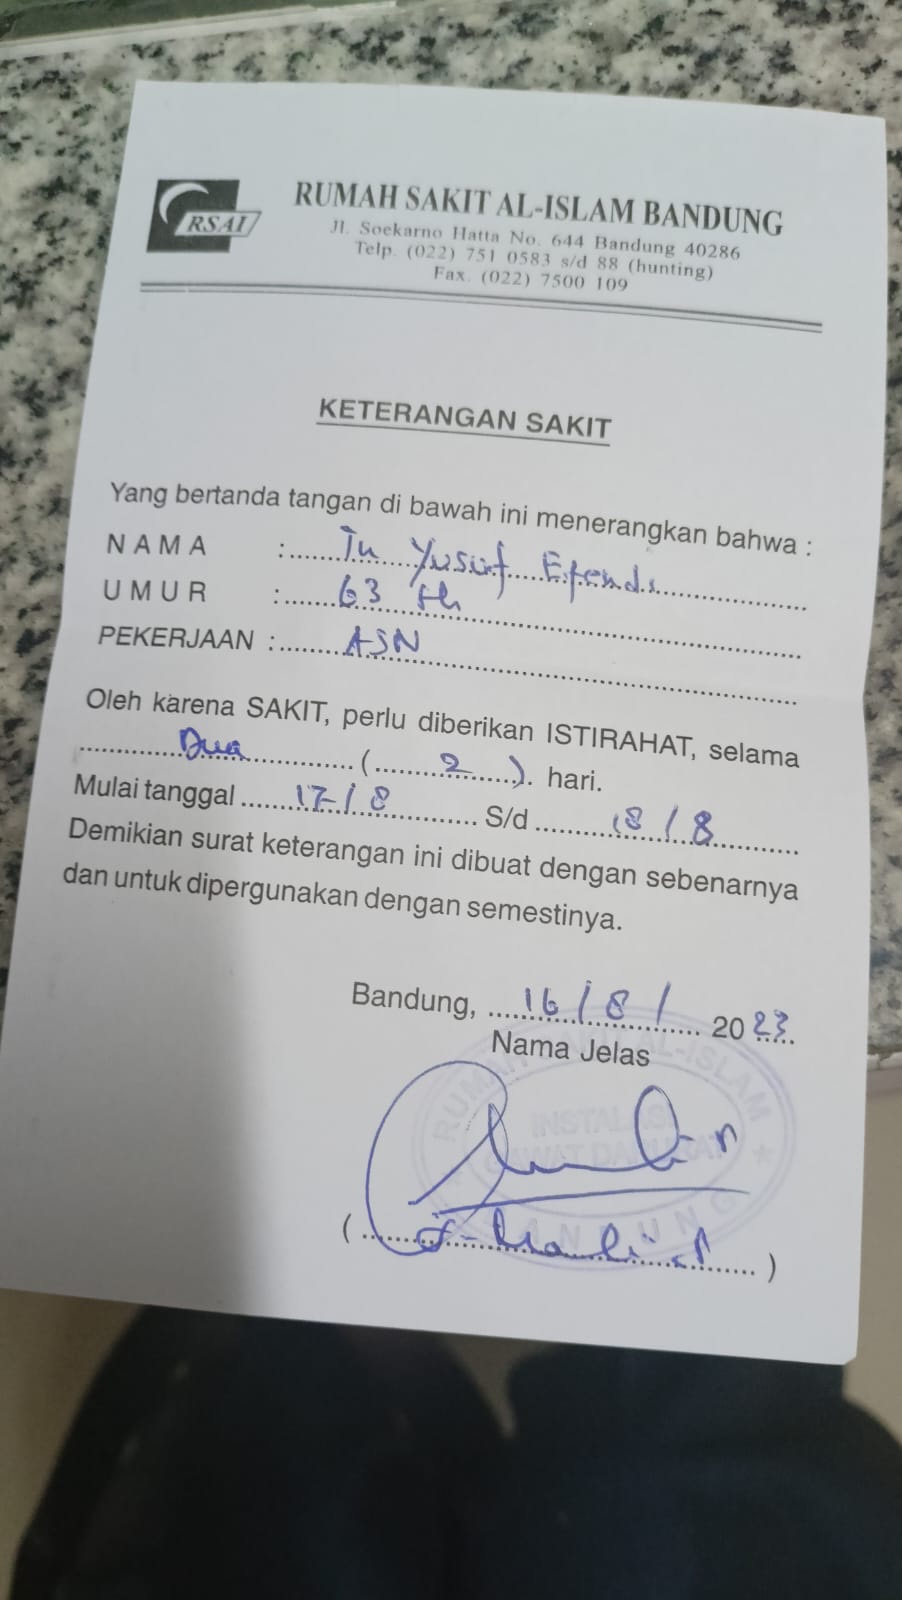 RSAI
RUMAH SAKIT AL-ISLAM BANDUNG
Jl. Soekarno Hatta No. 644 Bandung 40286
Telp. (022) 751 0583 s/d 88 (hunting)
Fax. (022) 7500 109
KETERANGAN SAKIT
Yang bertanda tangan di bawah ini menerangkan bahwa :
NAMA : Tn Yusuf Efendi
UMUR : 63 th
PEKERJAAN : ASN
Oleh karena SAKIT, perlu diberikan ISTIRAHAT, selama
Dua ( 2 ) hari.
Mulai tanggal 17/8 S/d 18/8
Demikian surat keterangan ini dibuat dengan sebenarnya
dan untuk dipergunakan dengan semestinya.
Bandung, 16/8/ 2023
Nama Jelas
RUMAH SAKIT AL-ISLAM
INSTALASI
GAWAT DARURAT
BANDUNG